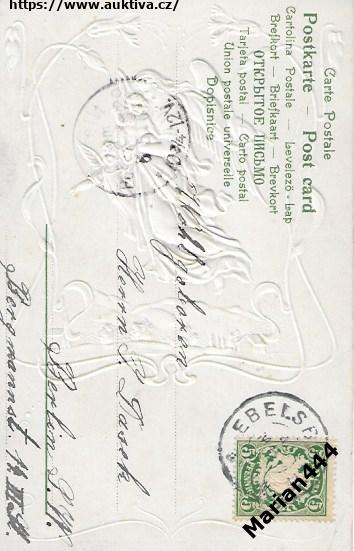 https://www.auktiva.cz/
Carte Postale
Postkarte — Post card
Cartolina Postale — Levelező-Lap
Brefkort — Briefkaart — Brevkort
ОТКРЫТОЕ ПИСЬМО
Tarjeta postal — Cartó postal
Union postale universelle
Dopisnice
Wohlgeboren
Herrn P.
Berlin S.W.
Bergmannst.
EBELSB
5
5
Marian444